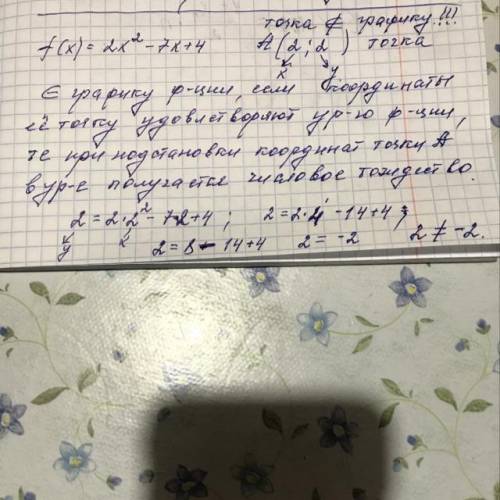 точка ∉ графику!!!
f(x) = 2x² - 7x + 4 A(2; 2) точка
x y
∈ графику ф-ции, если координаты
её точку удовлетворяют ур-ю ф-ции,
те при подстановки координат точки A
в ур-е получается числовое тождество.
2 = 2·2² - 7·2 + 4; 2 = 2·4 - 14 + 4;
y x 2 = 8 - 14 + 4 2 = -2 2 ≠ -2.